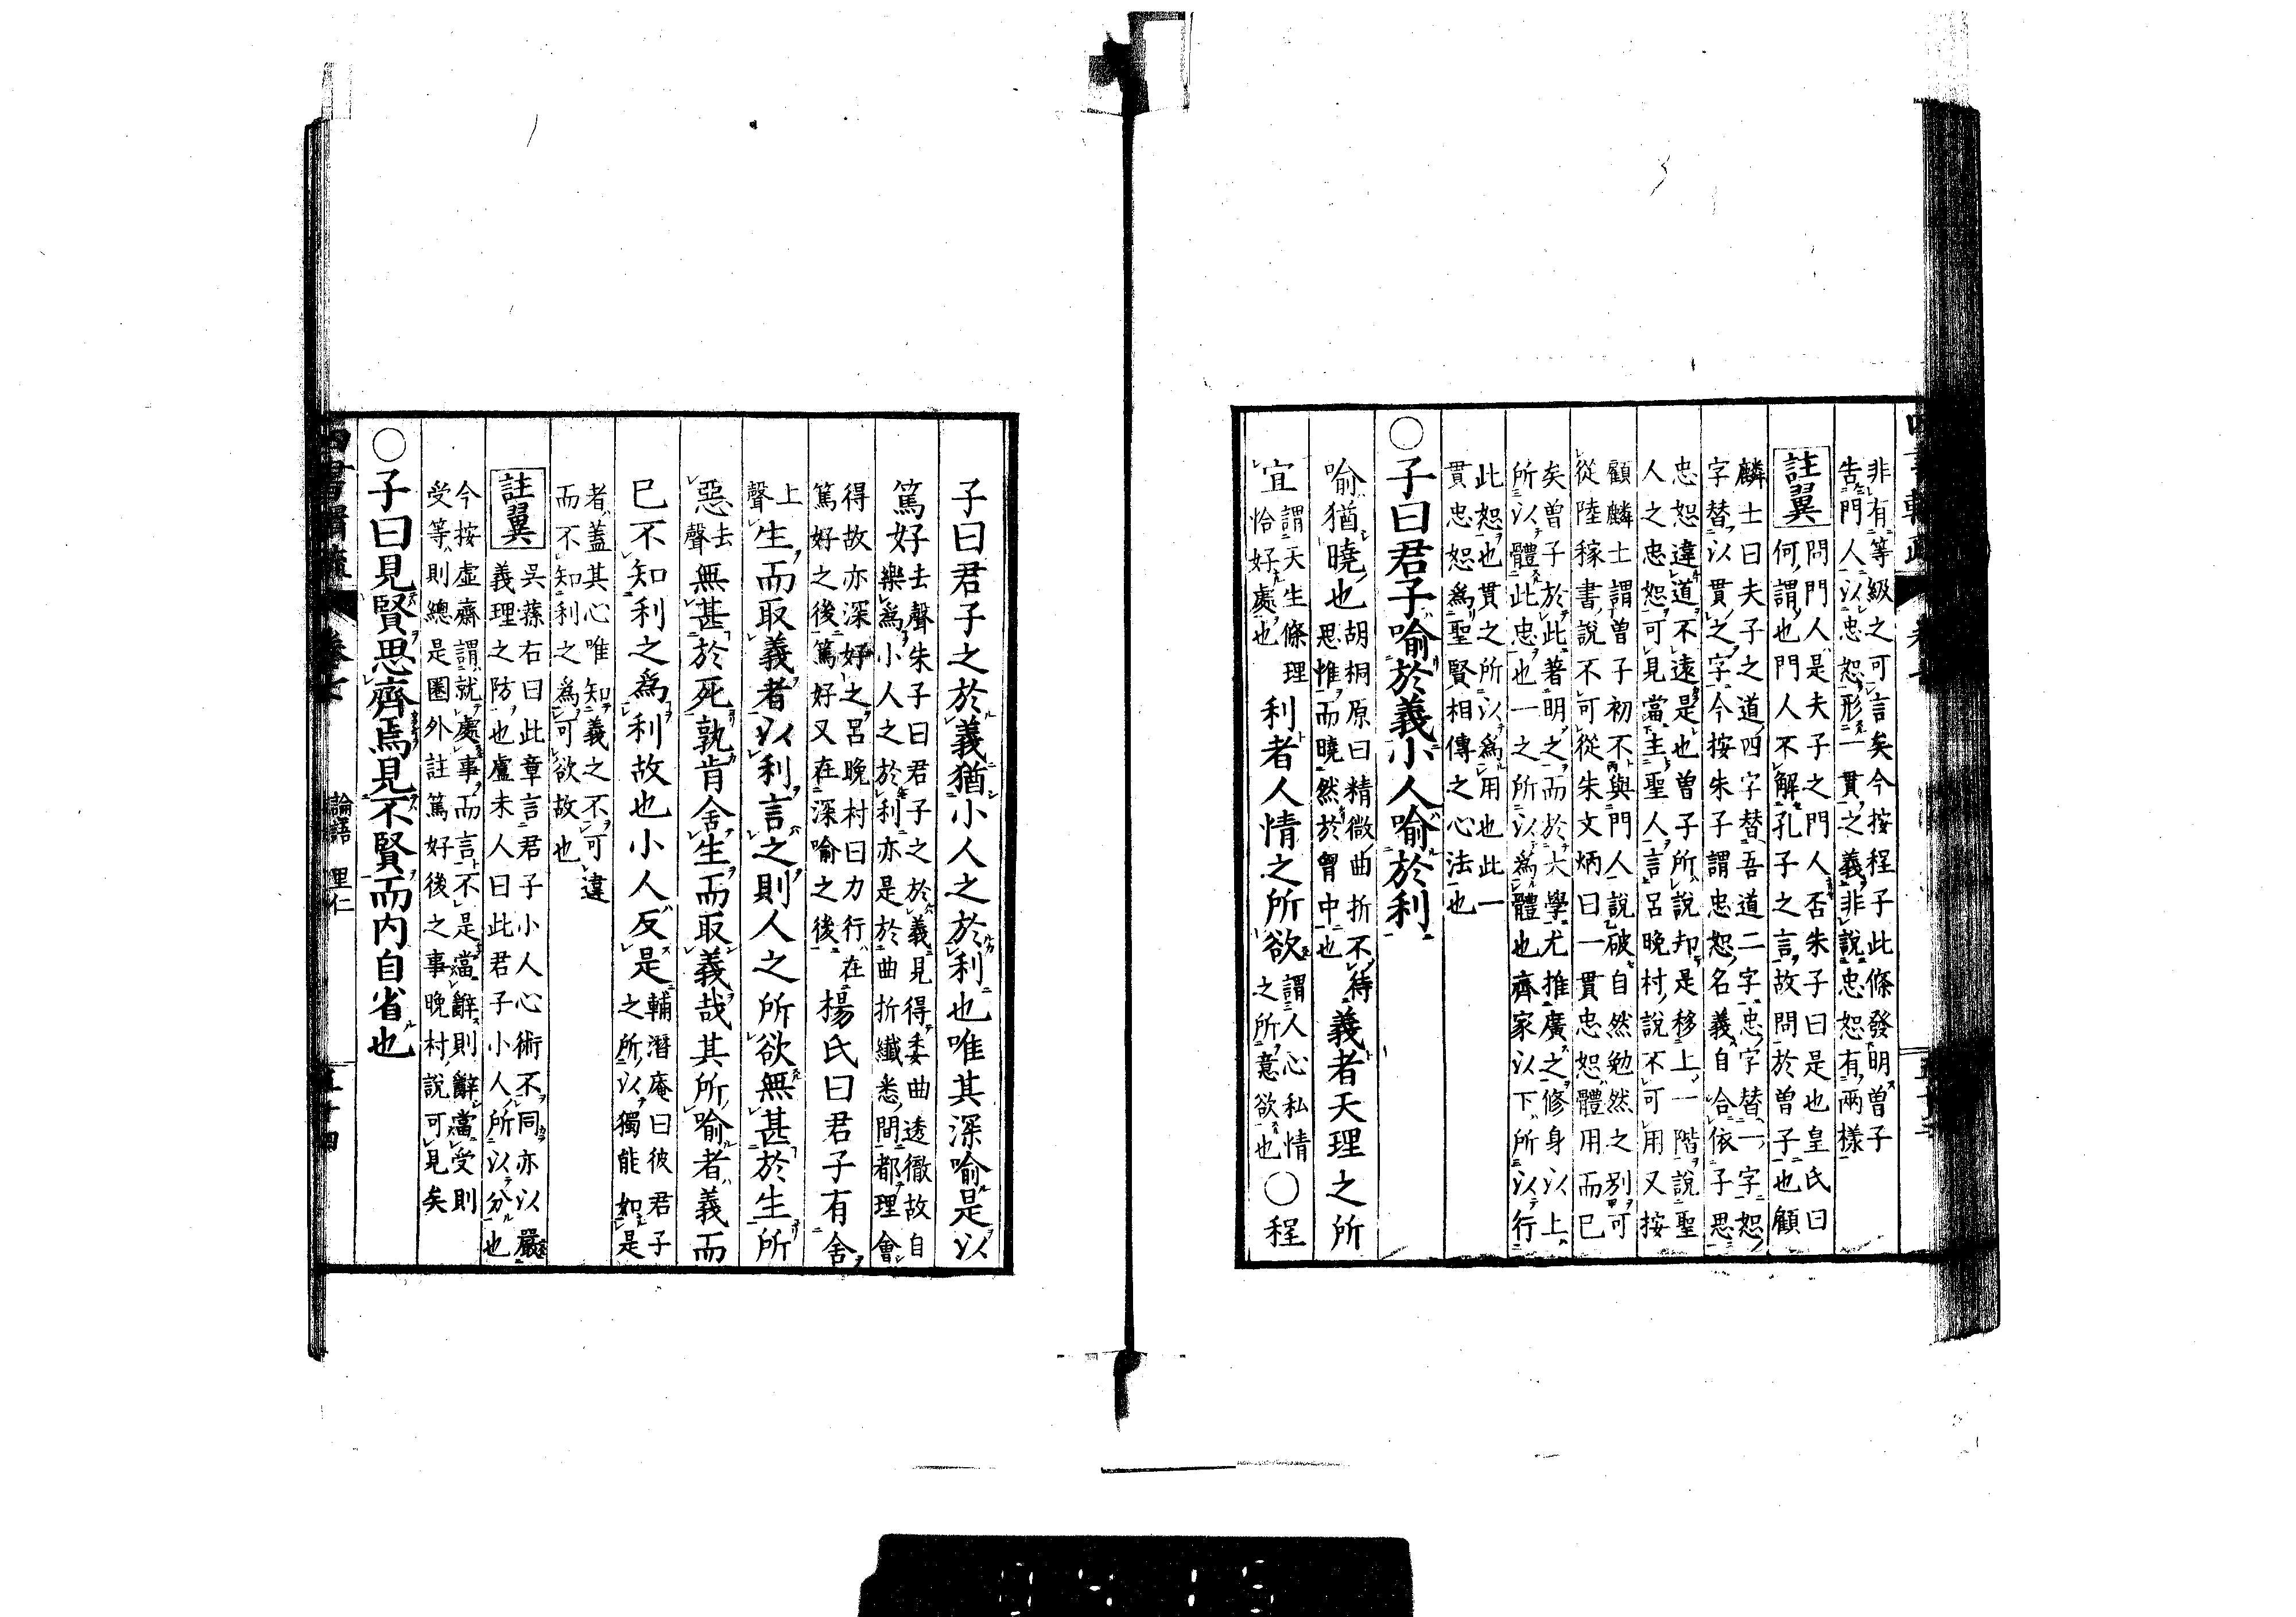 非有等級之可言矣今按程子此條發明曾子
告門人以忠恕形一貫之義非說忠恕有兩樣
註翼
問門人是夫子之門人否朱子曰是也皇氏曰
何謂也門人不解孔子之言故問於曾子也顧
麟士曰夫子之道四字替吾道二字忠字替一字恕
字替以貫之字今按朱子謂忠恕名義自合依子思
忠恕違道不遠是也曾子所說却是移上一階說聖
人之忠恕可見當主聖人言呂晚村說不可用又按
顧麟士謂曾子初不與門人說破自然勉然之別可
從陸稼書說不可從朱文炳曰一貫忠恕體用而已
矣曾子於此著明之而於大學尤推廣之修身以上
所以體此忠也一之所以為體也齊家以下所以行
此恕也貫之所以為用也此一
貫忠恕為聖賢相傳之心法也
○子曰君子喻於義小人喻於利
喻猶曉也
胡桐原曰精微曲折不待
思惟而曉然於胷中也
義者天理之所
宜
謂天生條理
恰好處也
利者人情之所欲
謂人心私情
之所意欲也
○程
子曰君子之於義猶小人之於利也唯其深喻是以
篤好
去聲朱子曰君子之於義見得委曲透徹故自
樂為小人之於利亦是於曲折纖悉間都理會
得故亦深好之呂晚村曰力行在
篤好之後篤好又在深喻之後
楊氏曰君子有舍
上
聲
生而取義者以利言之則人之所欲無甚於生所
惡
去
聲
無甚於死孰肯舍生而取義哉其所喻者義而
已不知利之為利故也小人反是
輔潛庵曰彼君子
之所以獨能如是
者蓋其心唯知義之不可違
而不知利之為可欲故也
註翼
吳蓀右曰此章言君子小人心術不同亦以嚴
義理之防也盧未人曰此君子小人所以分也
今按虛齋謂就處事而言不是當辭則辭當受則
受等則總是圈外註篤好後之事晚村說可見矣
○子曰見賢思齊焉見不賢而内自省也
論語 里仁